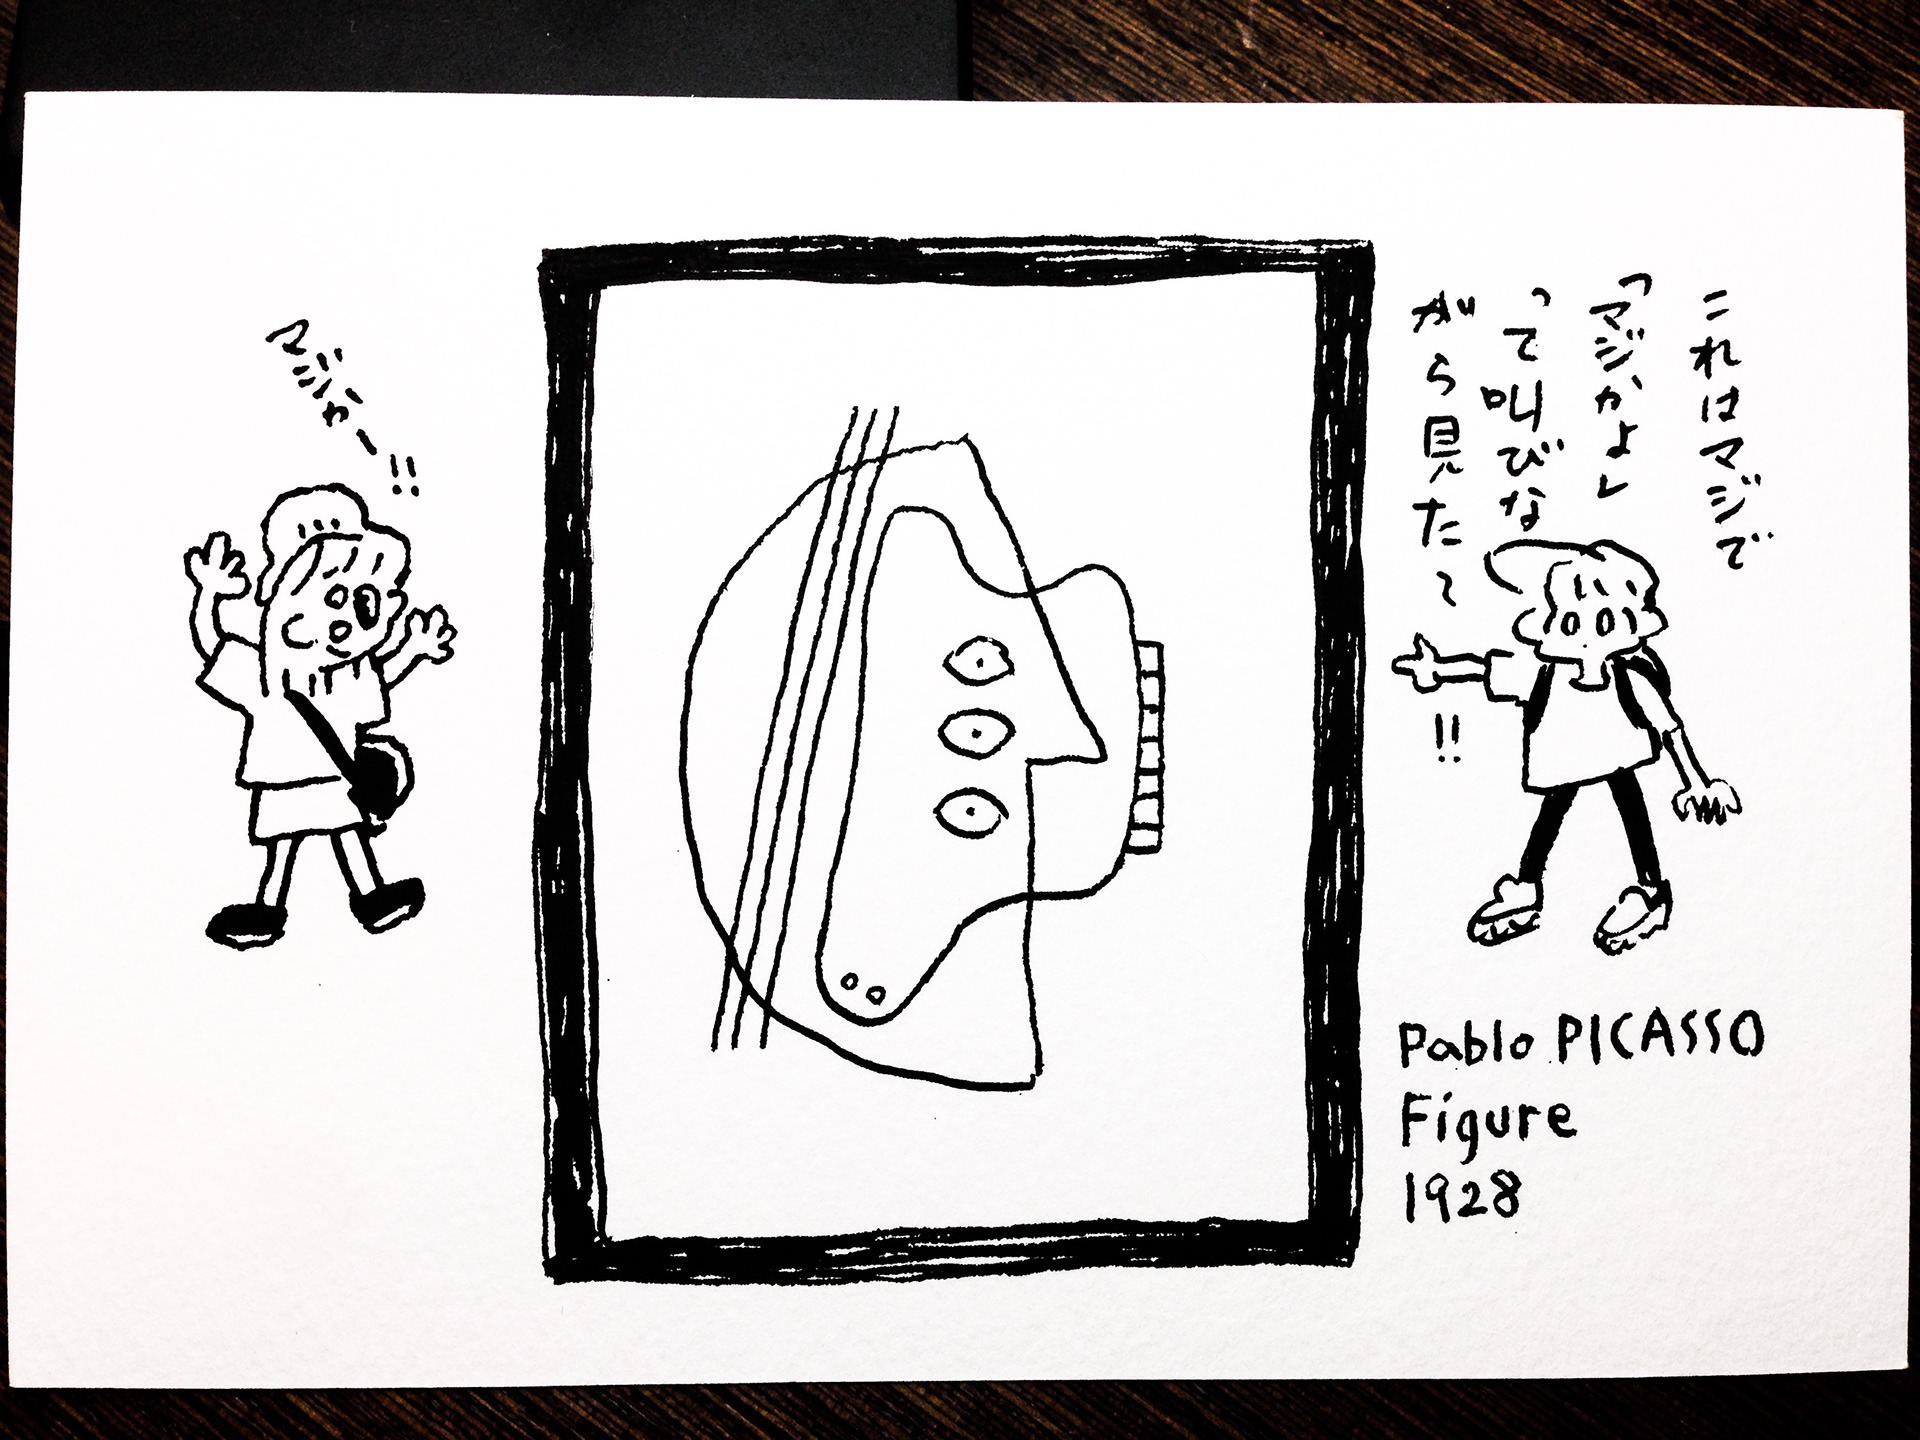 これはマジで
「マジかよ」
って叫びな
がら見た〜
!!
マジかー!!
Pablo PICASSO
Figure
1928